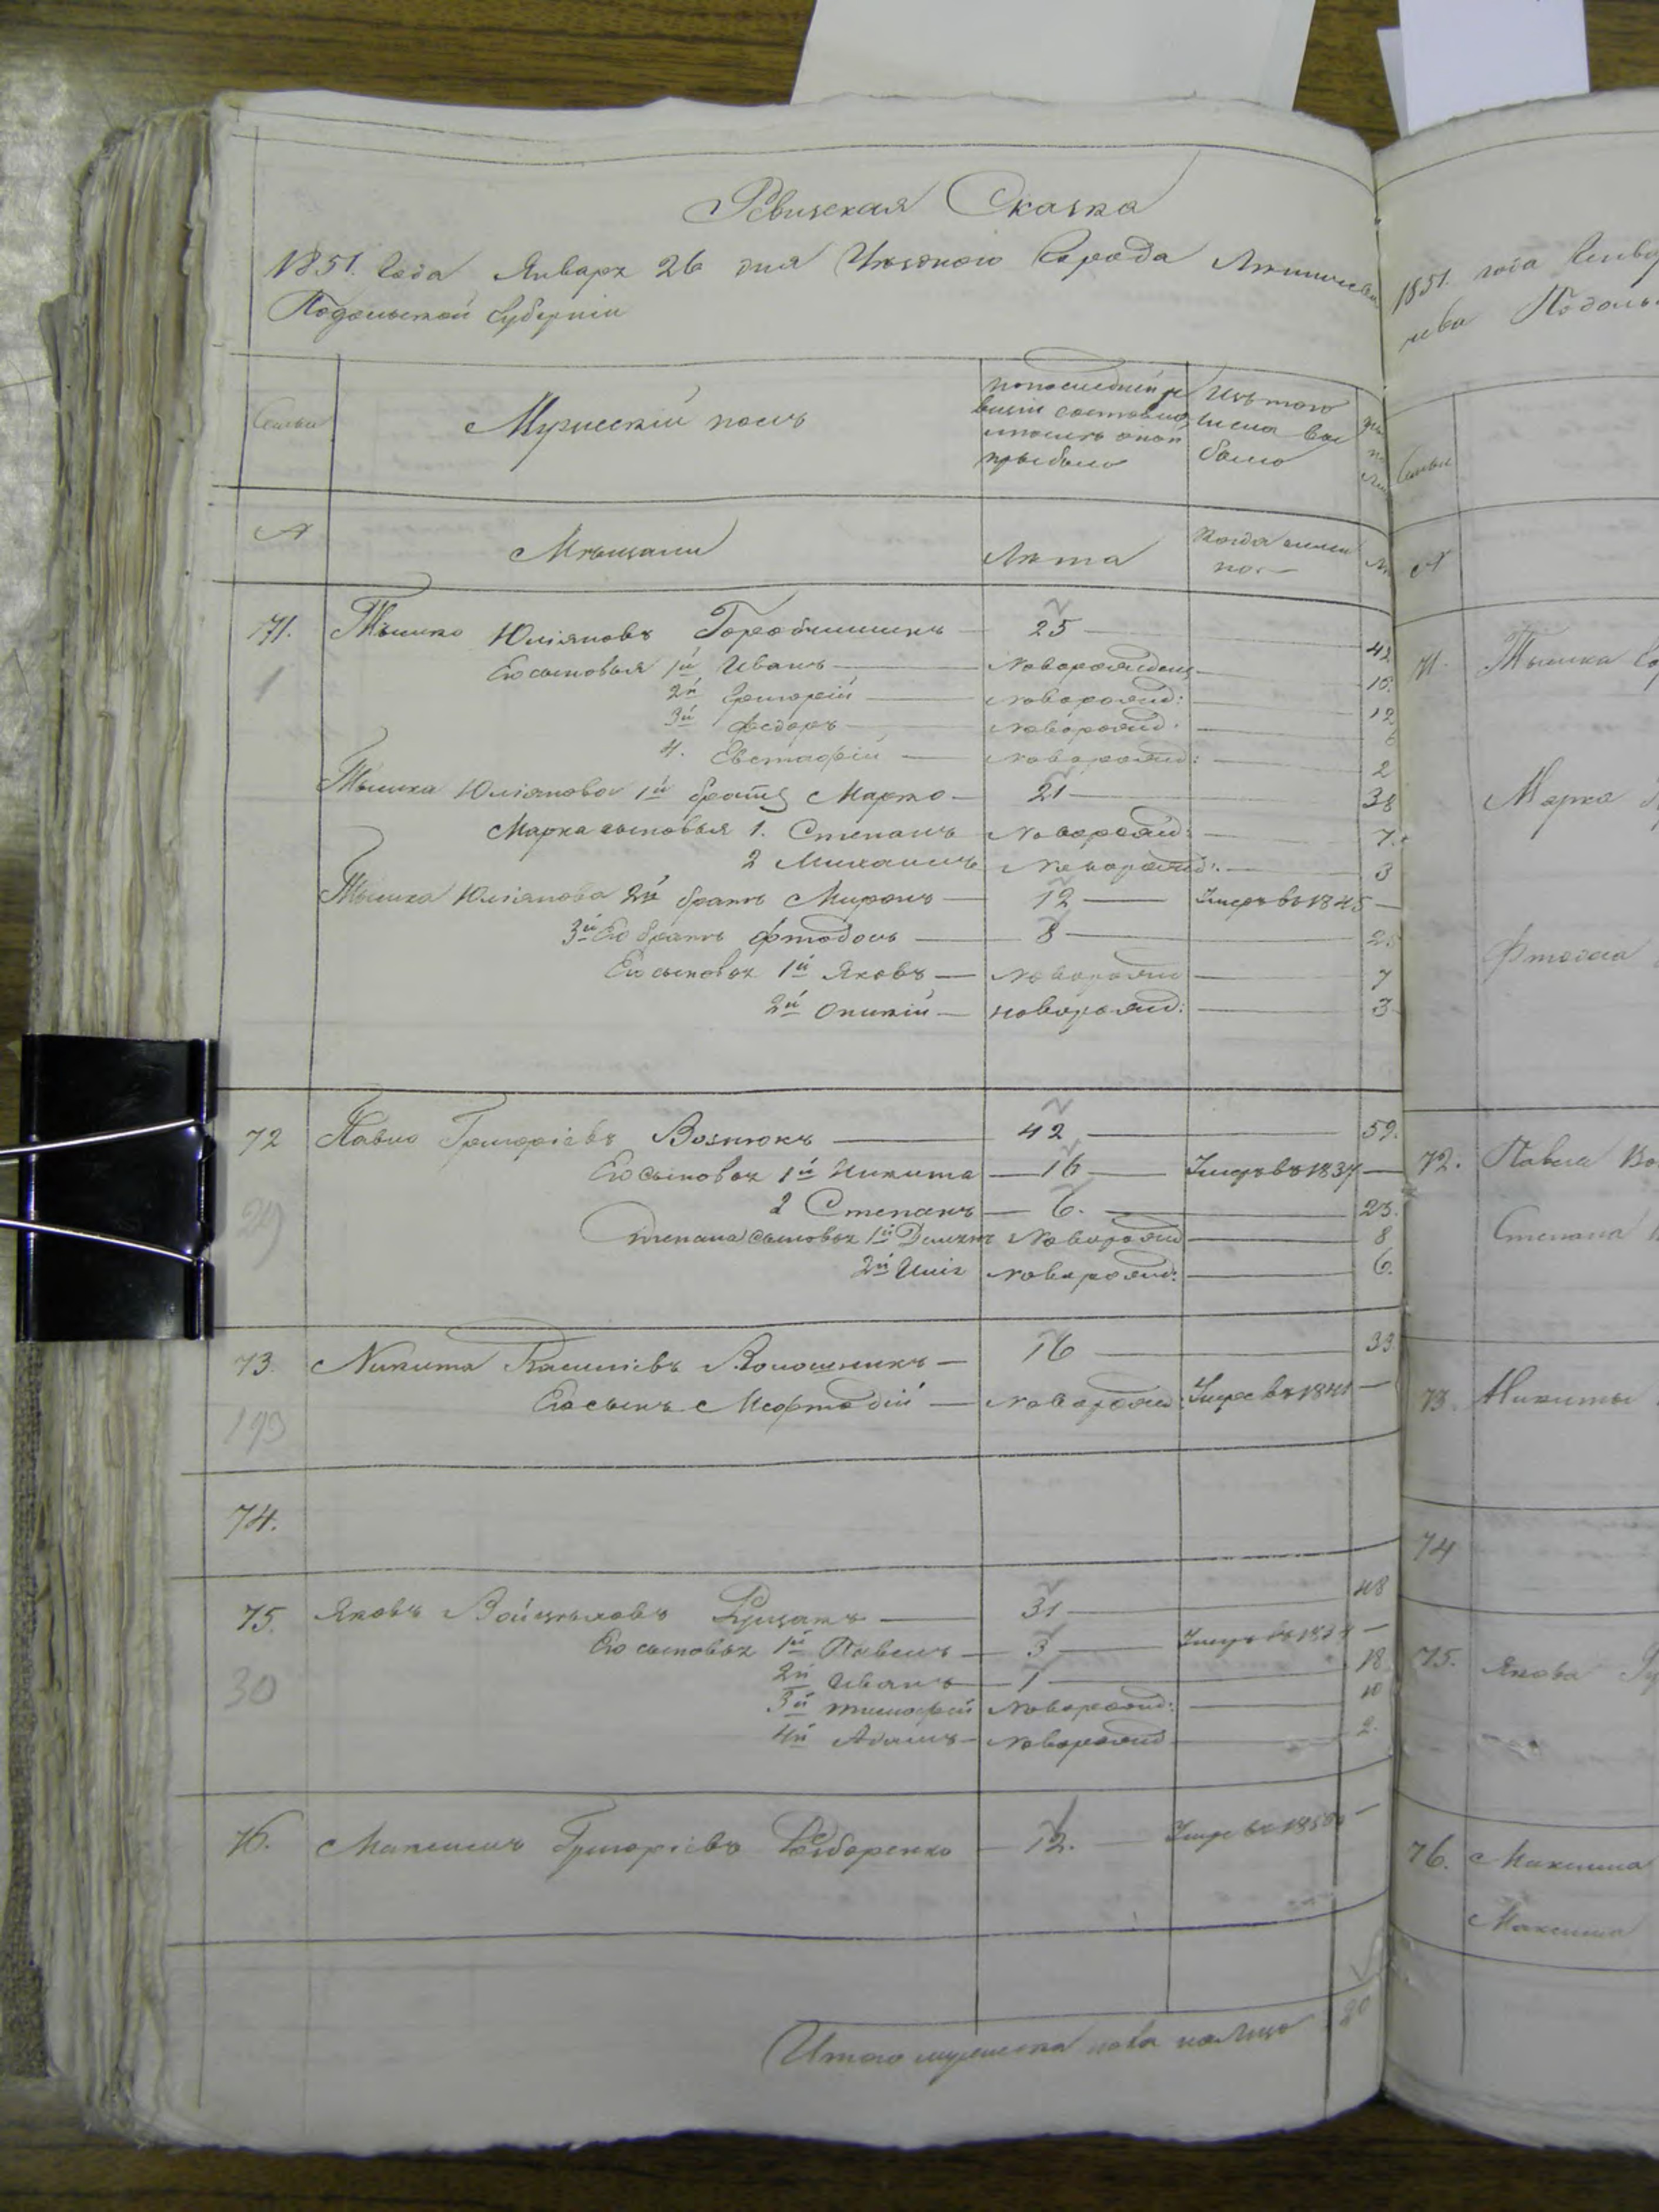 Ревизская Сказка
1851. Года Января 26 дня Уездного Города
Подольской Губернии
Семьи
Мужеский полъ
по последней ре
визии состояло
и после оной
прибыло
Изъ того
числа вы
было
№
Мѣщане
Лѣта
Когда именно
71. Тышко Юліяновъ 25 42
1
Его сыновья 1й Иванъ новорожден 16
2й Григорій новорожд: 12
3й Федоръ новорожд. 6
4. Евстафій новорожд: 2
Тышка Юліянова 1й братъ Марко 21 38
Марка сыновья 1. Степанъ новорожд: 7.
2 Михаилъ новорожд: 3
Тышка Юліянова 2й братъ Миронъ 12 Умеръ въ 1845
3й Его братъ Фтодосъ 8 25
Его сыновья 1й Яковъ новорожд 7
2й новорожд: 3
72 Павло Григоріевъ Вознюкъ 42 59.
29
Его сыновья 1й Никита 16 Умеръ въ 1837
2 Степанъ 6. 23.
Степана сыновья 1й новорожд 8
2й новорожд: 6.
73. Никита Волошникъ 16 33
193
Его сынъ Мефтодій новорожд: Умеръ въ 1841
74.
75. Яковъ Войцѣховъ 31 48
30
Его сыновья 1й Павелъ 3 Умеръ въ
2й Иванъ 1 18
3й тимофей новорожд: 10
4й Адамъ новорожд 2.
76. Максимъ Григоріевъ 12. Умеръ въ 1850
Итого мужеска пола на лицо 20
1851. года
Подоль
Семьи
№
71. Тышка
Марка
Фтодоса
72. Павла
Степана
73. Никиты
74
75. Якова
76. Максима
Максима